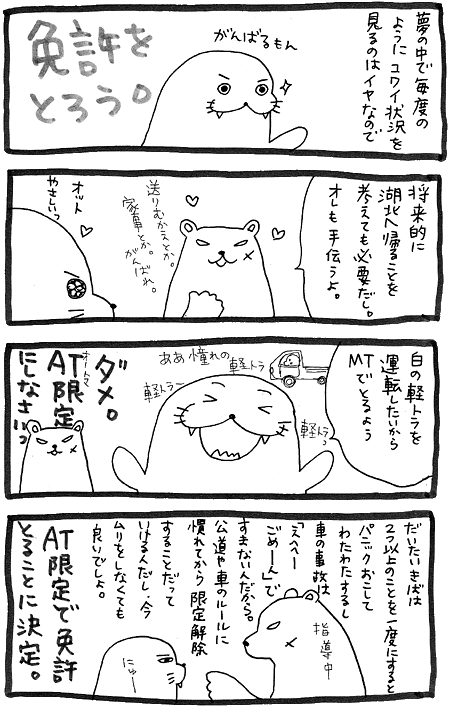 夢の中で毎度の
ようにコワイ状況を
見るのはイヤなので
がんばるもん
免許を
とろう。
将来的に
湖北へ帰ることを
考えても必要だし。
オレも手伝うよ。
送りむかえとか。
家事とか。がんばれ。
オット
やさしいっ
白の軽トラを
運転したいから
MTでとるよう
ああ憧れの軽トラ
軽トラー
軽トラっ
ダメ。
オートマ
AT限定
にしなさいっ
だいたいきばは
2つ以上のことを一度にすると
パニックおこして
わたわたするし
車の事故は
「えへー
ごめーん」で
すまないんだから。
公道や車のルールに
慣れてから限定解除
することだって
いけるんだし、今
ムリをしなくても
良いでしょ。
指導中
にゅー
AT限定で免許
とることに決定。